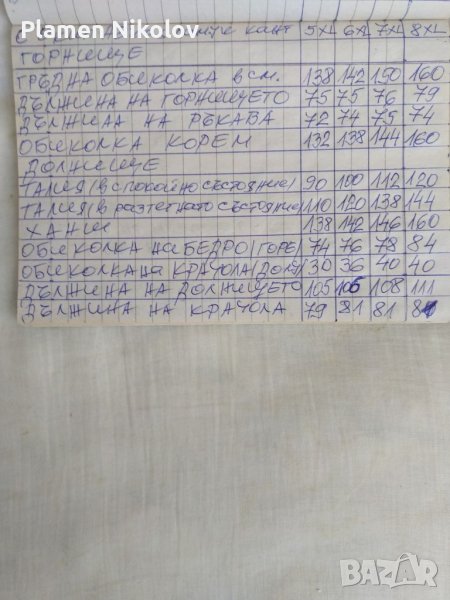 Plamen Nikolov
кант 5XL 6XL 7XL 8XL
ГОРНИЩЕ
ГРЪДНА ОБИКОЛКА В СМ. 138 142 150 160
ДЪЛЖИНА НА ГОРНИЩЕТО 75 75 76 79
ДЪЛЖИНА НА РЪКАВА 72 74 75 74
ОБИКОЛКА КОРЕМ 132 138 144 160
ДОЛНИЩЕ
ТАЛИЯ (В СПОКОЙНО СЪСТОЯНИЕ) 90 100 112 120
ТАЛИЯ (В РАЗТЕГНАТО СЪСТОЯНИЕ) 110 120 138 144
ХАНШ 138 142 146 160
ОБИКОЛКА НА БЕДРО (ГОРЕ) 74 76 78 84
ОБИКОЛКА НА КРАЧОЛА (ДОЛУ) 30 36 40 40
ДЪЛЖИНА НА ДОЛНИЩЕТО 105 106 108 111
ДЪЛЖИНА НА КРАЧОЛА 79 81 81
bazar